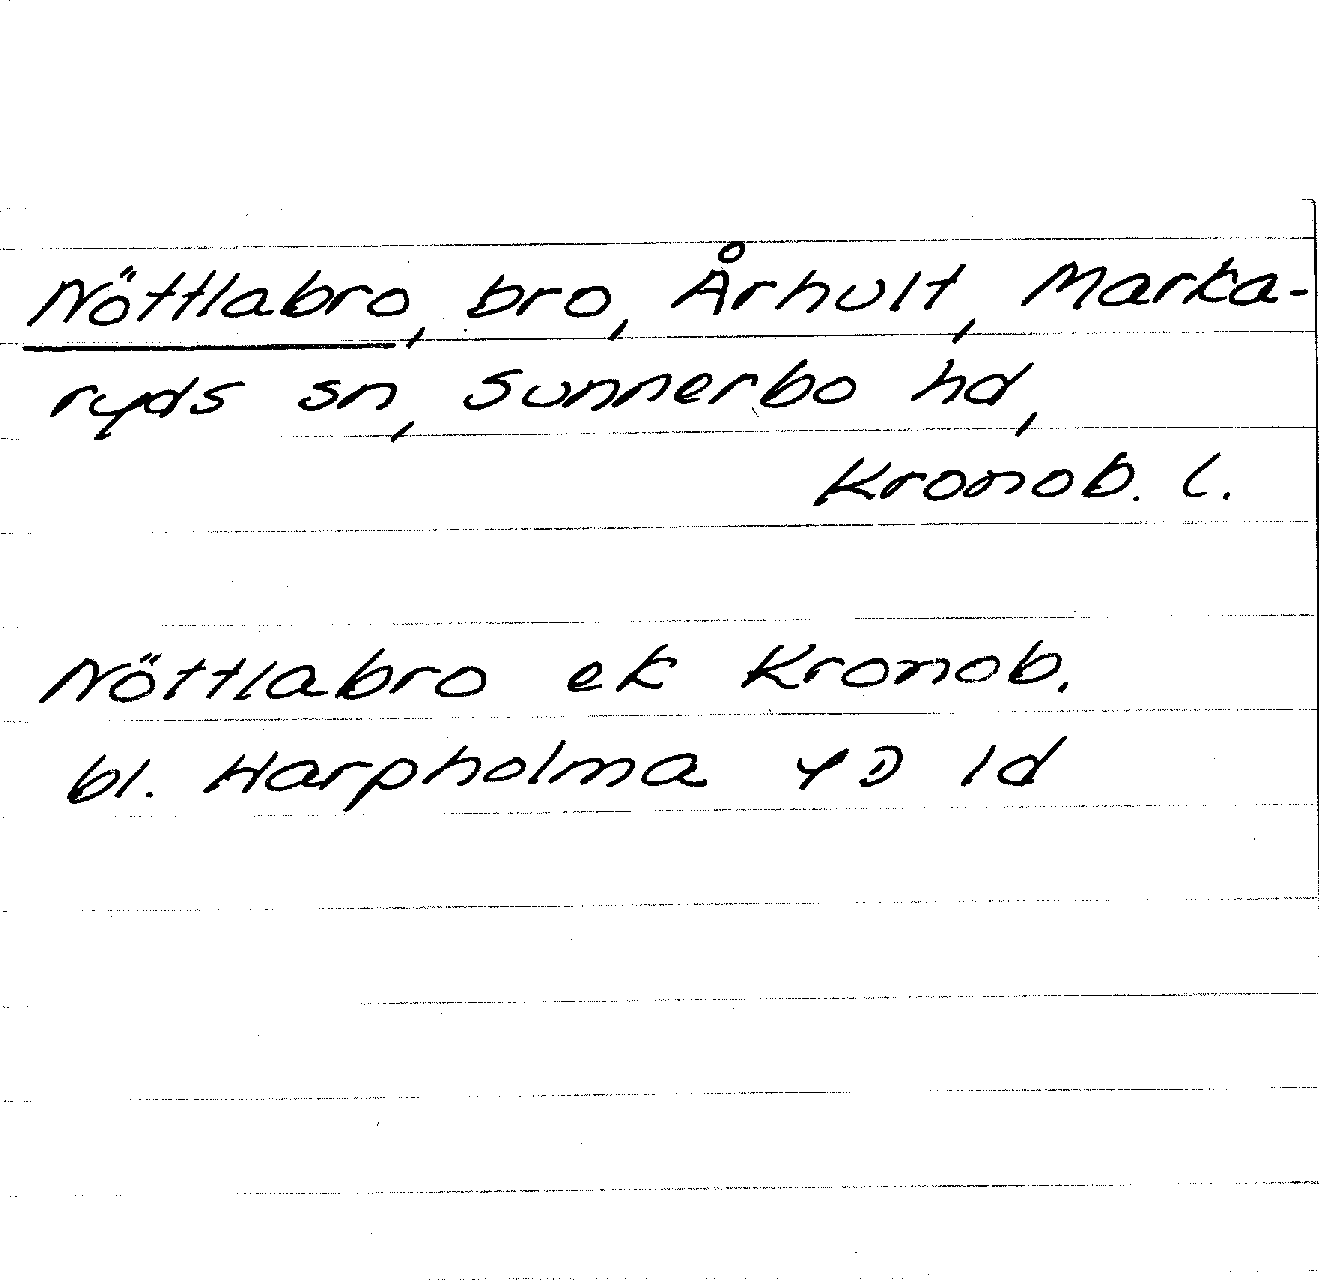 Nöttlabro, bro, Århult, Marka-
ryds sn, Sunnerbo hd,
Kronob. l.
Nöttlabro ek Kronob.
bl. Harpholma 4D 1d